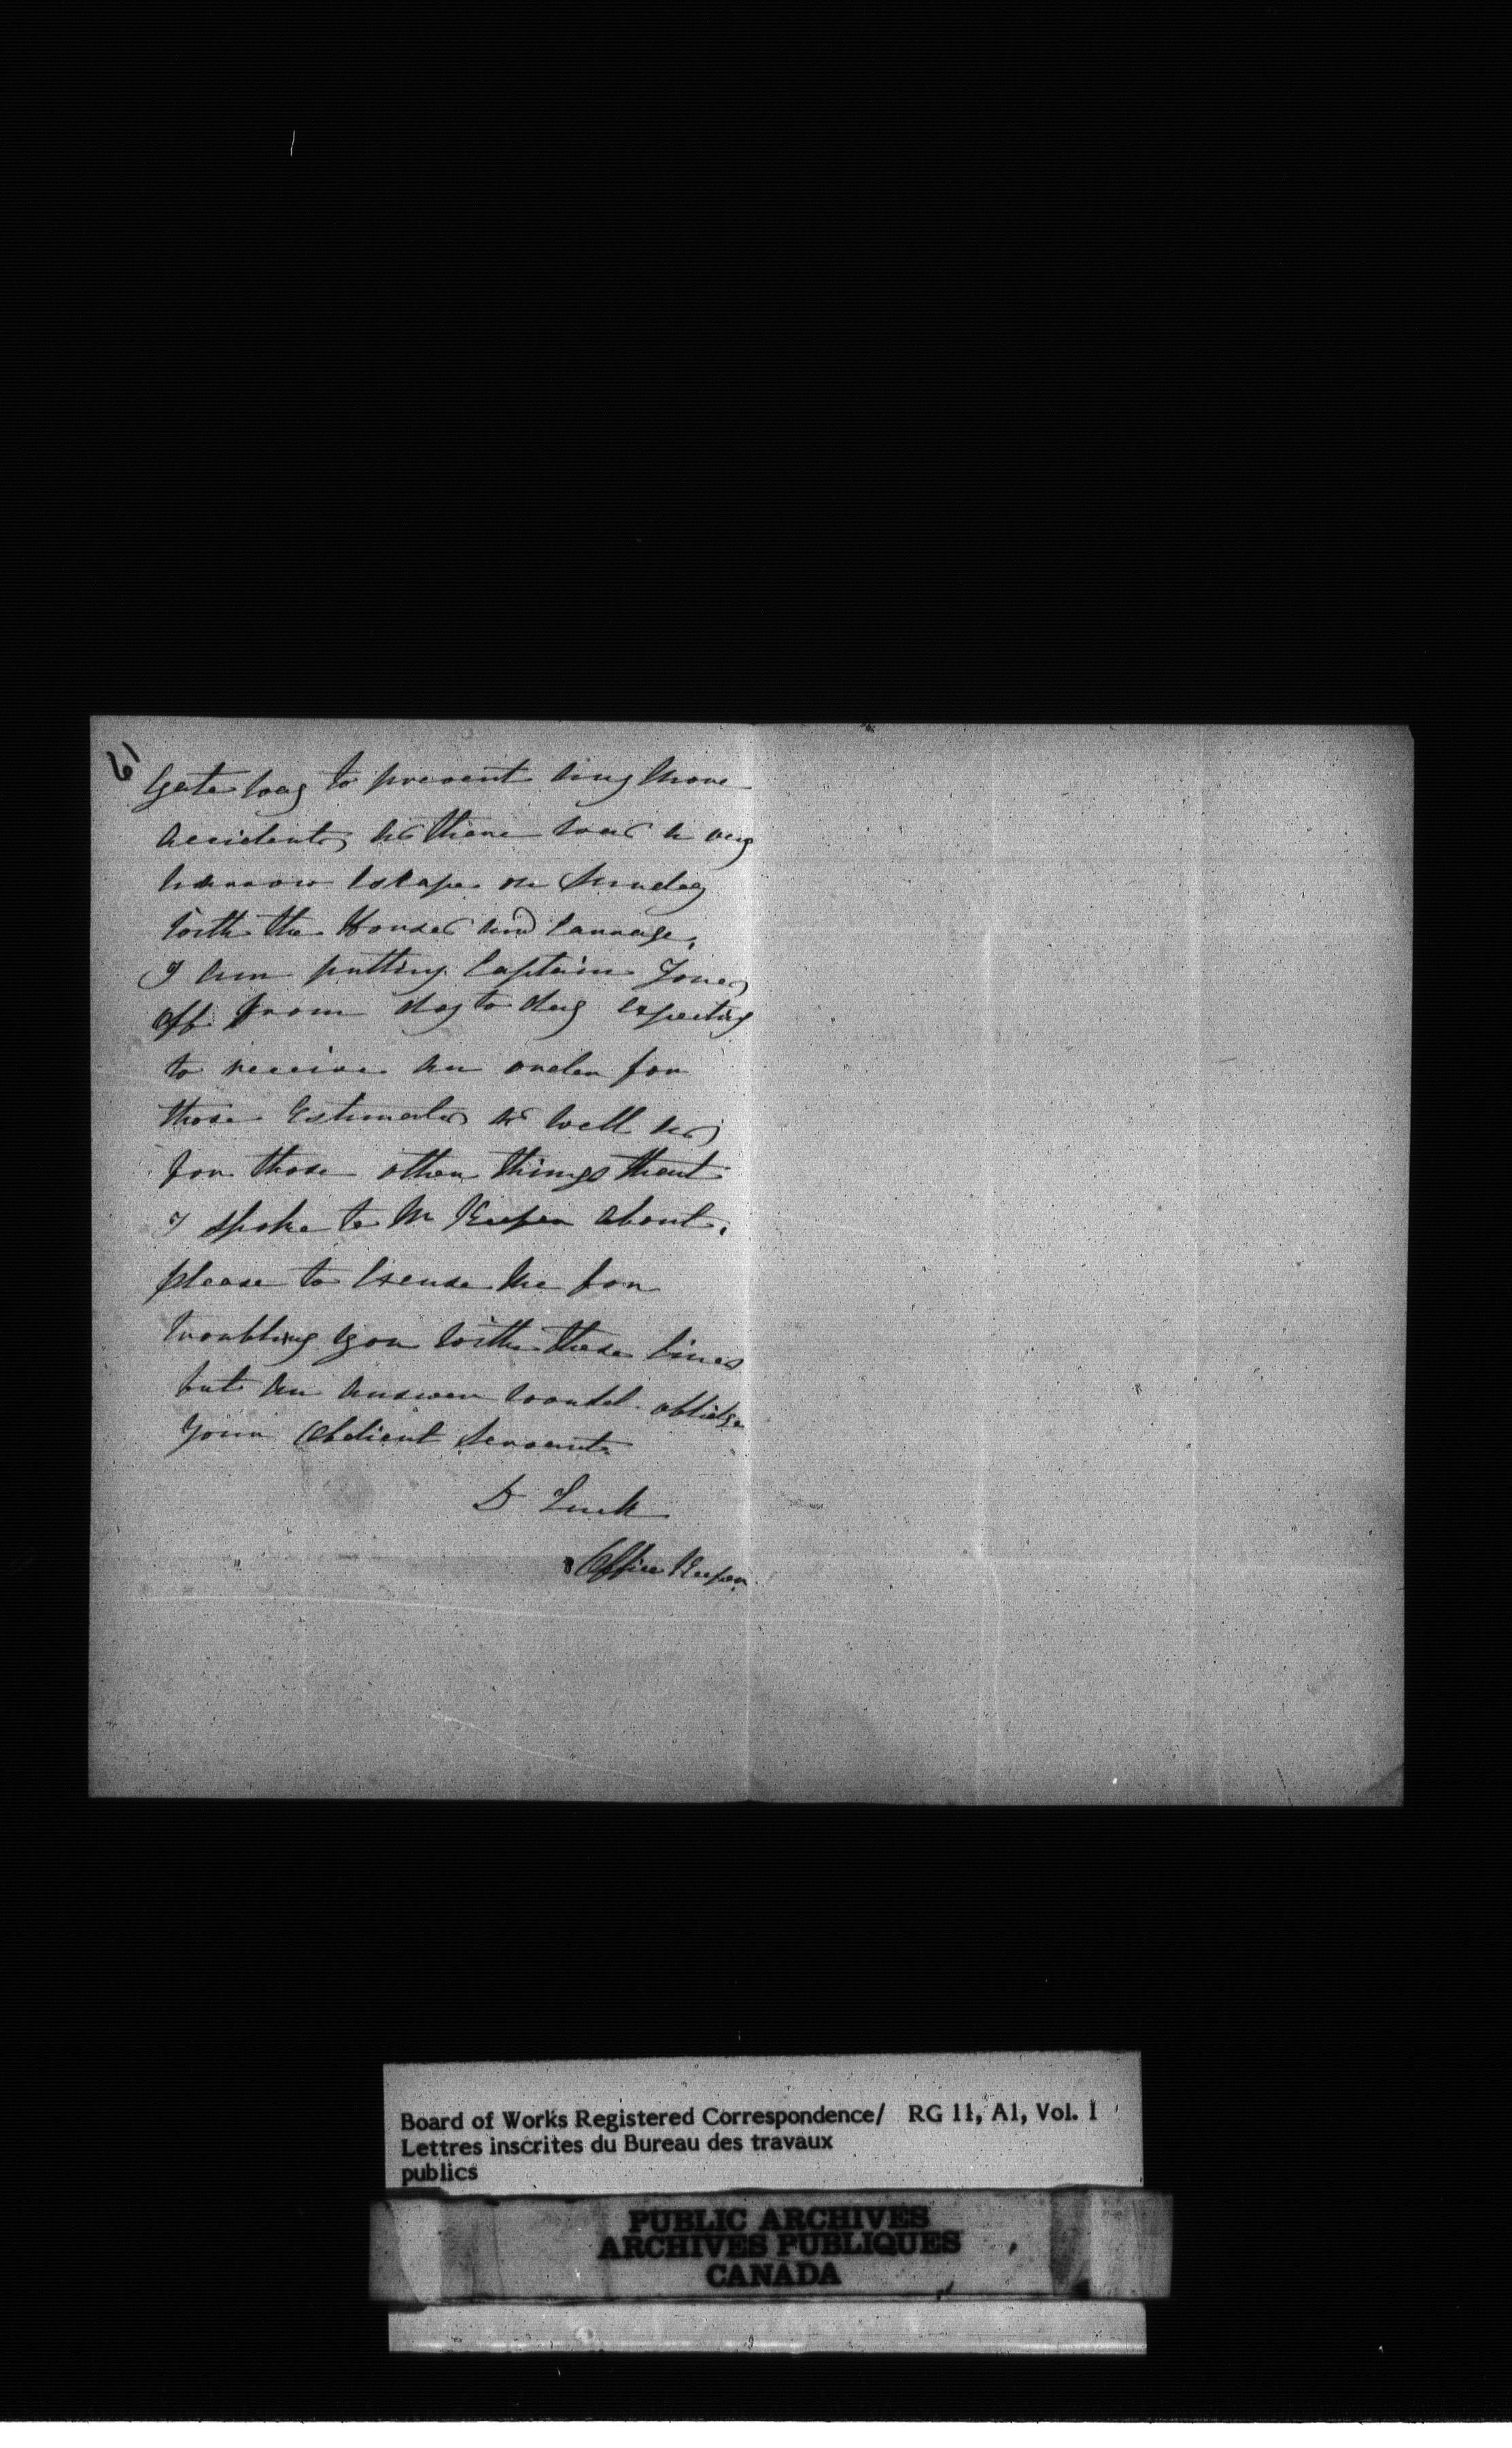 Gate way to prevent any more
accidents as there was a very
narrow Escape on Sunday
with the Horses and Carrage.
I am putting Captain Jones
off from day to day expecting
to receive an order for
those Estimates as well as
for those other things that
I spoke to Mr Keefer about.
please to Excuse me for
troubling you with these lines
but an answer would oblidge
Your Obdient Servent
D Luck
Office Keeper
Board of Works Registered Correspondence/ RG 11, A1, Vol. 1
Lettres inscrites du Bureau des travaux
publics
PUBLIC ARCHIVES
ARCHIVES PUBLIQUES
CANADA